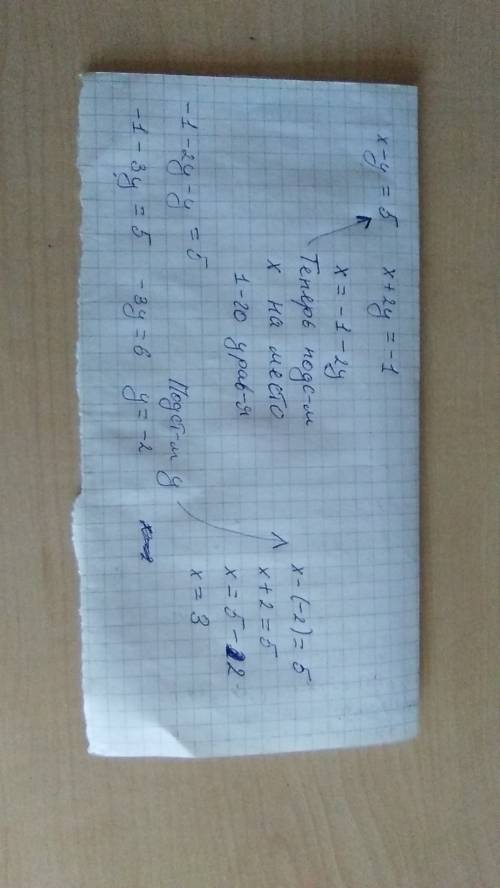 x-y=5 x+2y=-1
x=-1-2y
Теперь подс-м
x на место
1-го урав-я
-1-2y-y=5
-1-3y=5 -3y=6 y=-2
Подст-м y
x-(-2)=5
x+2=5
x=5-2
x=3